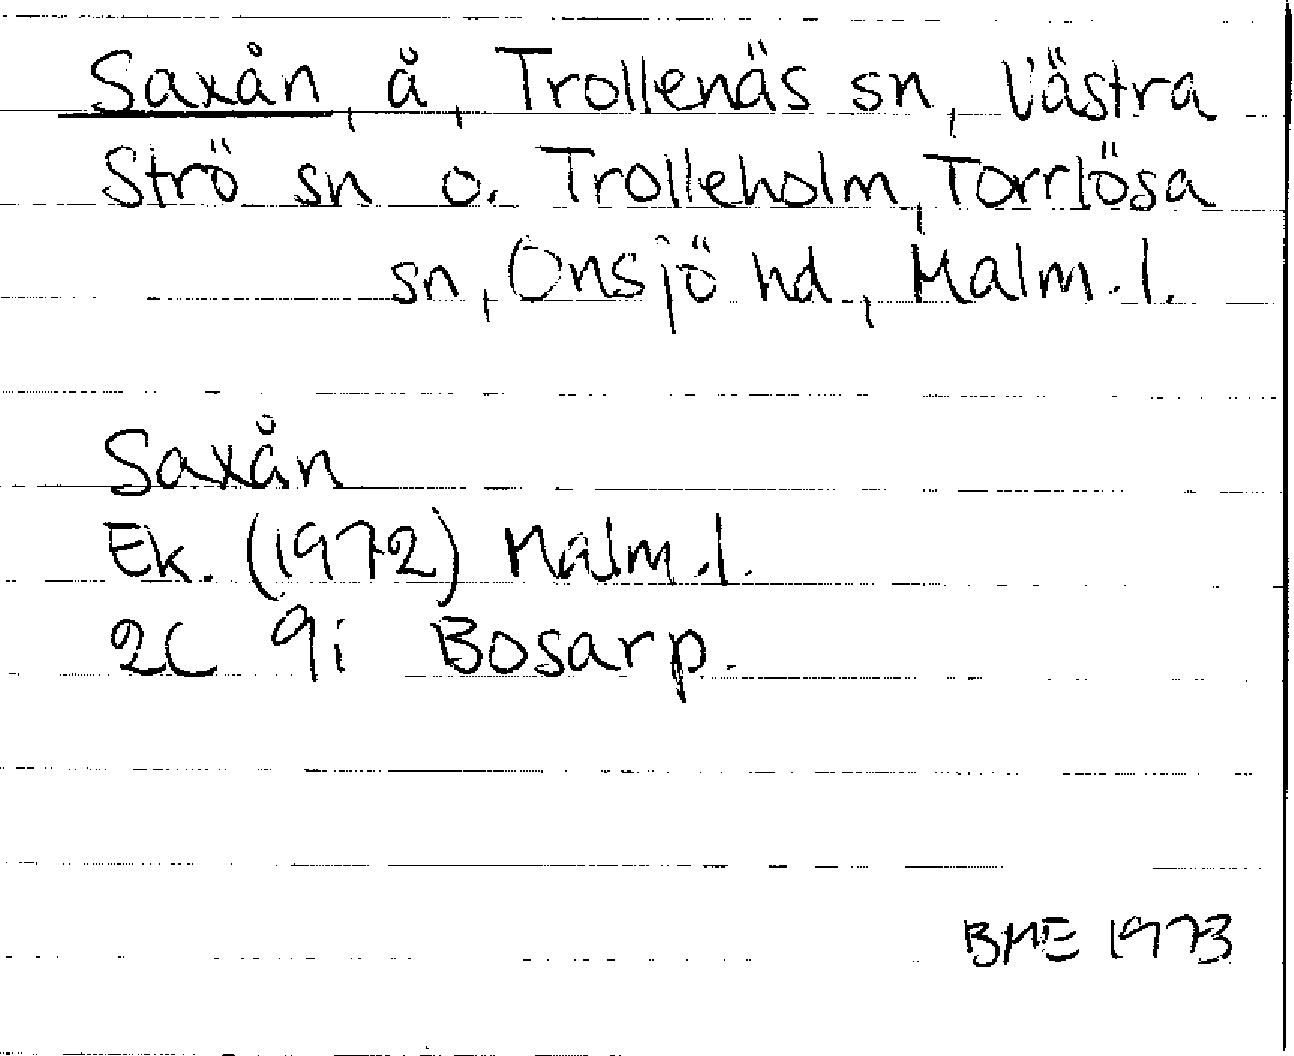 Saxån, å, Trollenäs sn, Västra
Strö sn o. Trolleholm, Torrlösa
sn, Onsjö hd, Malm.l.
Saxån
Ek. (1972) Malm.l.
2C 9i Bosarp.
BME 1973